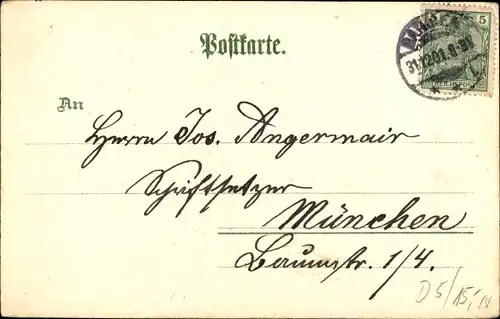 Postkarte.
5
31.12.01.8-9N.
An
Herrn Jos. Angermair
Schriftsetzer
München
Baumstr. 1/4.
D5/15,-